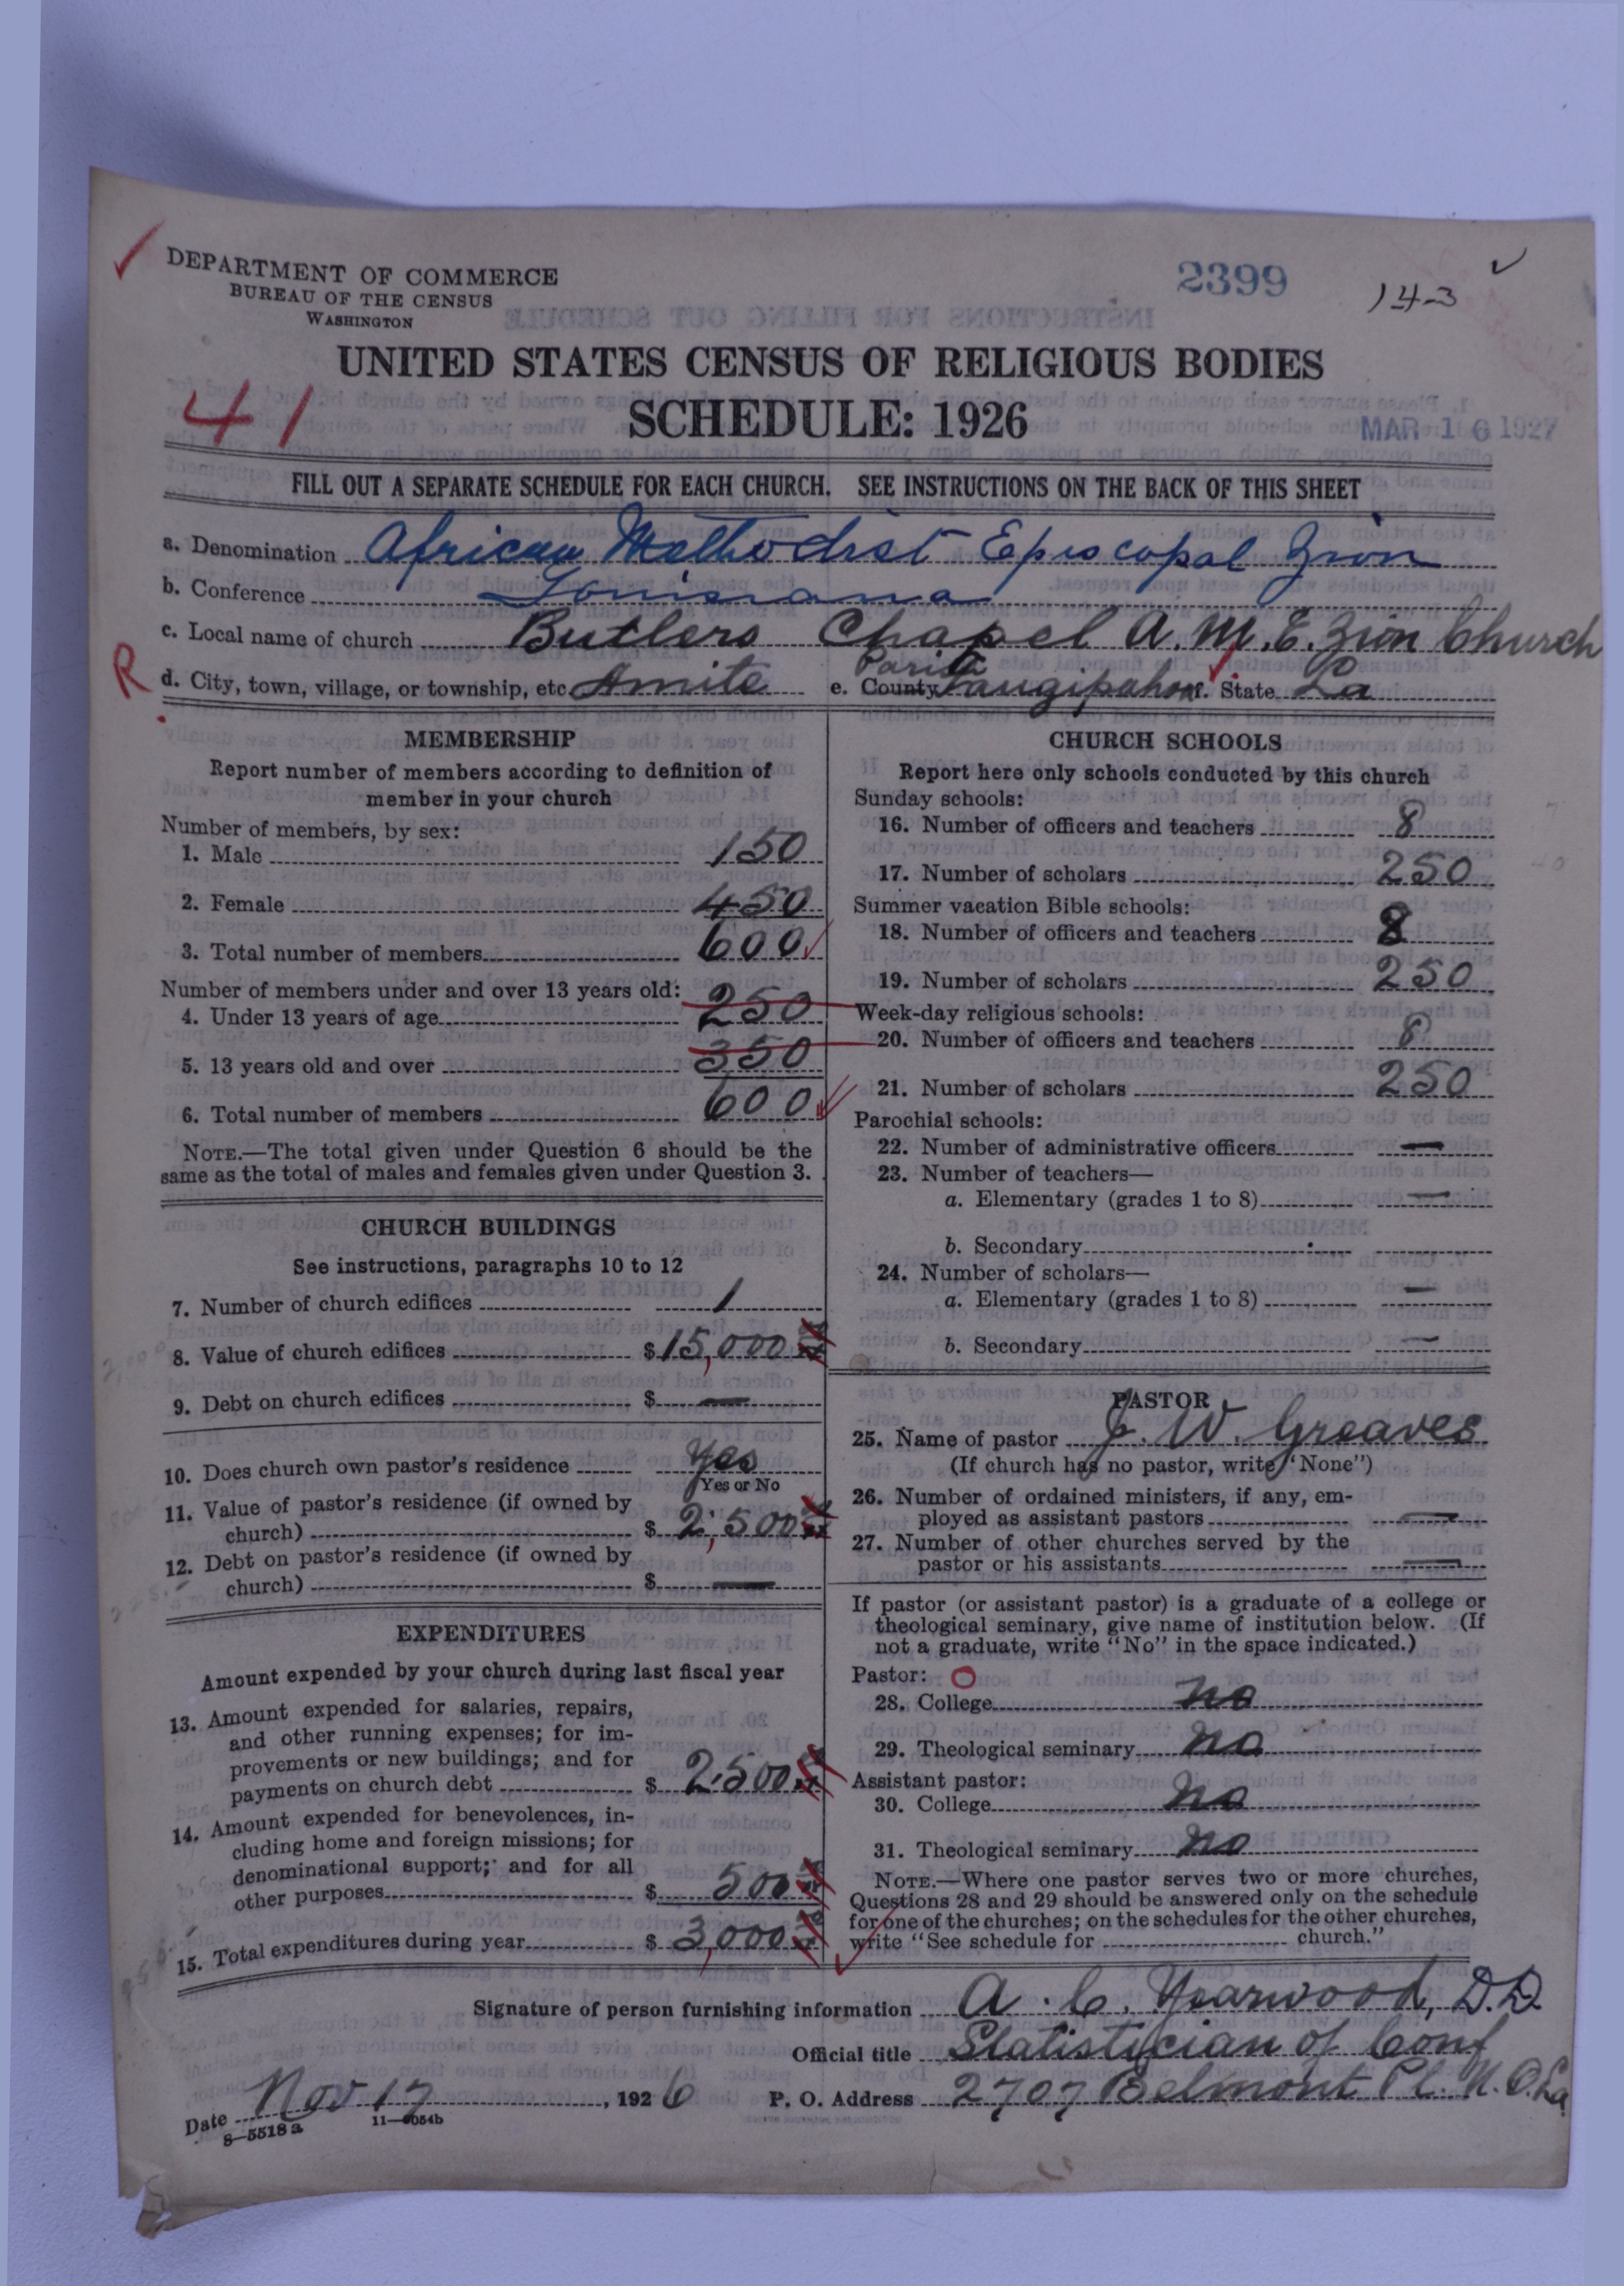 DEPARTMENT OF COMMERCE
BUREAU OF THE CENSUS
WASHINGTON
2399
143
UNITED STATES CENSUS OF RELIGIOUS BODIES
41
SCHEDULE: 1926
MAR 16 1927
FILL OUT A SEPARATE SCHEDULE FOR EACH CHURCH. SEE INSTRUCTIONS ON THE BACK OF THIS SHEET
a. Denomination African Methodist Episcopal Zion
b. Conference Louisiana
c. Local name of church Butlers Chapel A.M.E. Zion Church
R
d. City, town, village, or township, etc. Amite e. County Parish Tangipahoa f. State La
MEMBERSHIP
Report number of members according to definition of
member in your church
Number of members, by sex:
1. Male 150
2. Female 450
3. Total number of members 600
Number of members under and over 13 years old:
4. Under 13 years of age 250
5. 13 years old and over 350
6. Total number of members 600
NOTE.—The total given under Question 6 should be the
same as the total of males and females given under Question 3.
CHURCH BUILDINGS
See instructions, paragraphs 10 to 12
7. Number of church edifices 1
8. Value of church edifices $ 15,000
9. Debt on church edifices $ —
10. Does church own pastor's residence Yes
Yes or No
11. Value of pastor's residence (if owned by
church) $ 2,500
12. Debt on pastor's residence (if owned by
church) $ —
EXPENDITURES
Amount expended by your church during last fiscal year
13. Amount expended for salaries, repairs,
and other running expenses; for im-
provements or new buildings; and for
payments on church debt $ 2.500
14. Amount expended for benevolences, in-
cluding home and foreign missions; for
denominational support; and for all
other purposes $ 500
15. Total expenditures during year $ 3,000
CHURCH SCHOOLS
Report here only schools conducted by this church
Sunday schools:
16. Number of officers and teachers 8
17. Number of scholars 250
Summer vacation Bible schools:
18. Number of officers and teachers 8
19. Number of scholars 250
Week-day religious schools:
20. Number of officers and teachers 8
21. Number of scholars 250
Parochial schools:
22. Number of administrative officers —
23. Number of teachers—
a. Elementary (grades 1 to 8) —
b. Secondary
24. Number of scholars—
a. Elementary (grades 1 to 8) —
b. Secondary —
PASTOR
25. Name of pastor J. W. Greaves
(If church has no pastor, write "None")
26. Number of ordained ministers, if any, em-
ployed as assistant pastors —
27. Number of other churches served by the
pastor or his assistants —
If pastor (or assistant pastor) is a graduate of a college or
theological seminary, give name of institution below. (If
not a graduate, write "No" in the space indicated.)
Pastor: O
28. College no
29. Theological seminary no
Assistant pastor:
30. College no
31. Theological seminary no
NOTE.—Where one pastor serves two or more churches,
Questions 28 and 29 should be answered only on the schedule
for one of the churches; on the schedules for the other churches,
write "See schedule for church."
Signature of person furnishing information A. C. Yearwood, D.D.
Official title Statistician of Conf
Date Nov 17, 1926 P. O. Address 2707 Belmont Pl. N. O. La
8—5518a 11—9054b